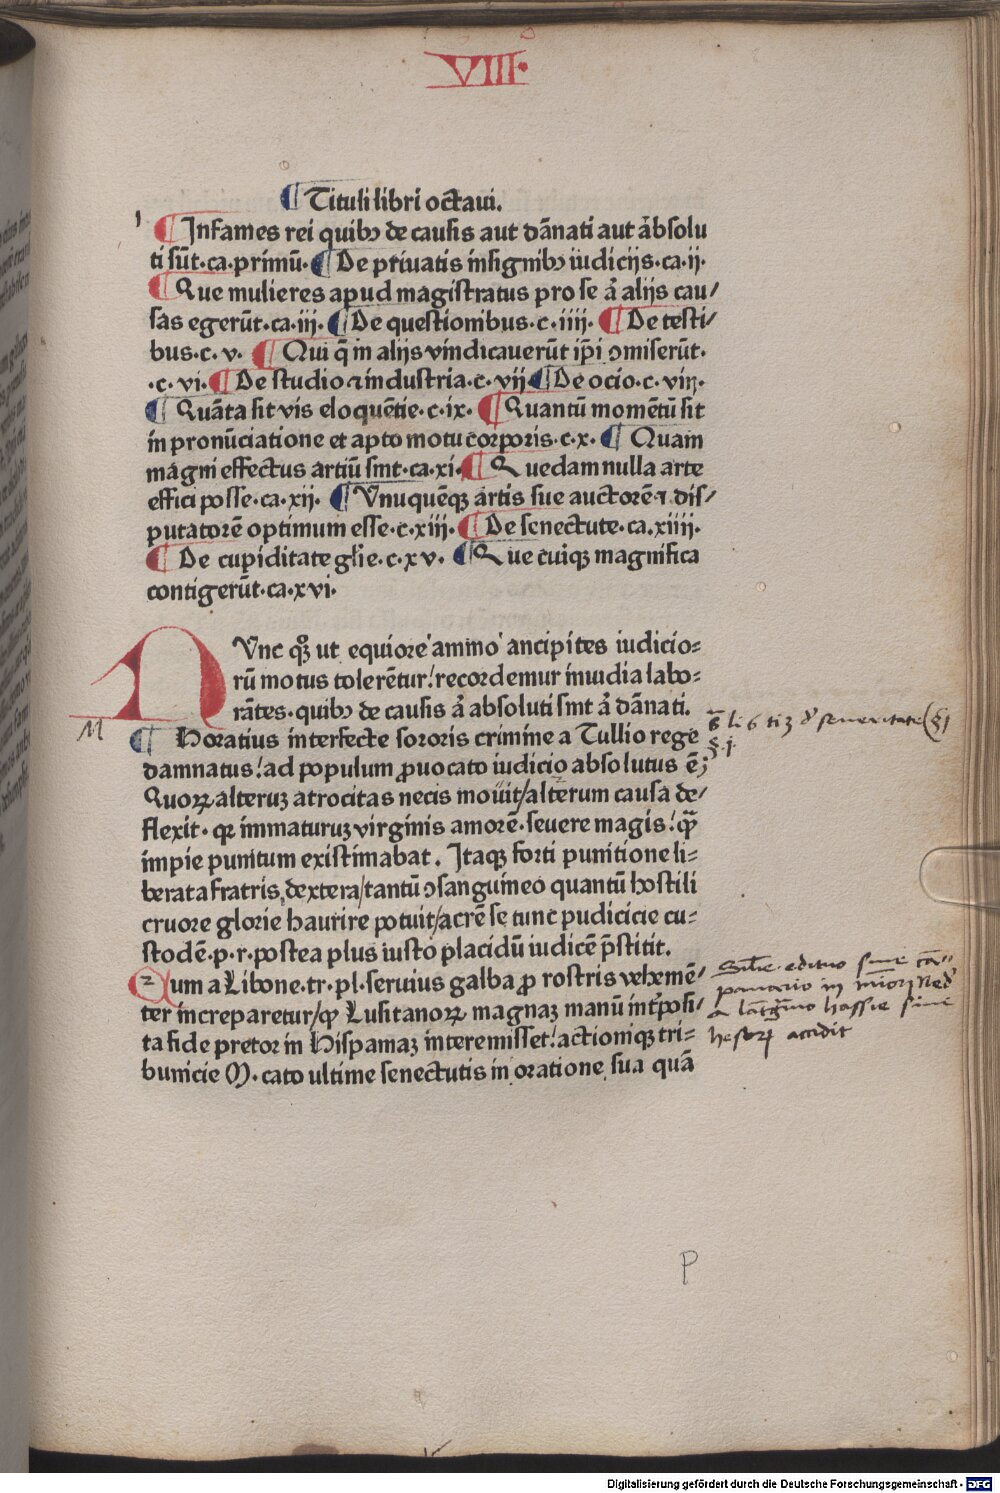 VIII·
¶ Tituli libri octaui.
¶ Infames rei quibꝫ de causis aut dānati aut absolu
ti sūt·ca·primū· ¶ De priuatis insignibꝫ iudicijs·ca·ij·
¶ Que mulieres apud magistratus pro se ⁊ alijs cau/
sas egerūt·ca·iij· ¶ De questionibus·c·iiij· ¶ De testi/
bus·c·v· ¶ Qui q̄ in alijs vindicauerūt ip̄i ꝯmiserūt·
·c·vi· ¶ De studio ⁊ industria·c·vij ¶ De ocio·c·viij·
¶ Quāta sit vis eloquētie·c·ix· ¶ Quantū momētū sit
in pronūciatione et apto motu corporis·c·x· ¶ Quam
magni effectus artiū sint·ca·xi· ¶ Quedam nulla arte
effici posse·ca·xij· ¶ Vnuquēqꝫ artis sue auctorē ⁊ dis/
putatorē optimum esse·c·xiij· ¶ De senectute·ca·xiiij·
¶ De cupiditate gl̄ie·c·xv· ¶ Que cuiqꝫ magnifica
contigerūt·ca·xvi·
NVnc qꝫ ut equiore animo ancipites iudicio=
rū motus tolerētur! recordemur inuidia labo=
rātes·quibꝫ de causis ā absoluti sint ā dānati.
¶ Horatius interfecte sororis crimine a Tullio rege
damnatus! ad populum ꝓuocato iudicio absolutus ē;
Quoꝝ alteruꝫ atrocitas necis mouit/alterum causa de/
flexit· qꝛ immaturuꝫ virginis amorē·seuere magis! q̄ꝫ
impie punitum existimabat. Itaqꝫ forti punitione li=
berata fratris dextera/tantū ꝯsanguineo quantū hostili
cruore glorie haurire potuit/acrē se tunc pudicicie cu=
stodē·p·r·postea plus iusto placidū iudicē p̄stitit.
Cum a Libone·tr·pl·seruius galba ꝓ rostris vehemē/
ter increparetur/ꝙ Lusitanoꝝ magnaꝫ manū int̄posi/
ta fide pretor in Hispaniaꝫ interemisset! actioniqꝫ tri=
bunicie M·cato ultime senectutis in oratione sua quā
hessoꝝ accidit
P
Digitalisierung gefördert durch die Deutsche Forschungsgemeinschaft - DFG